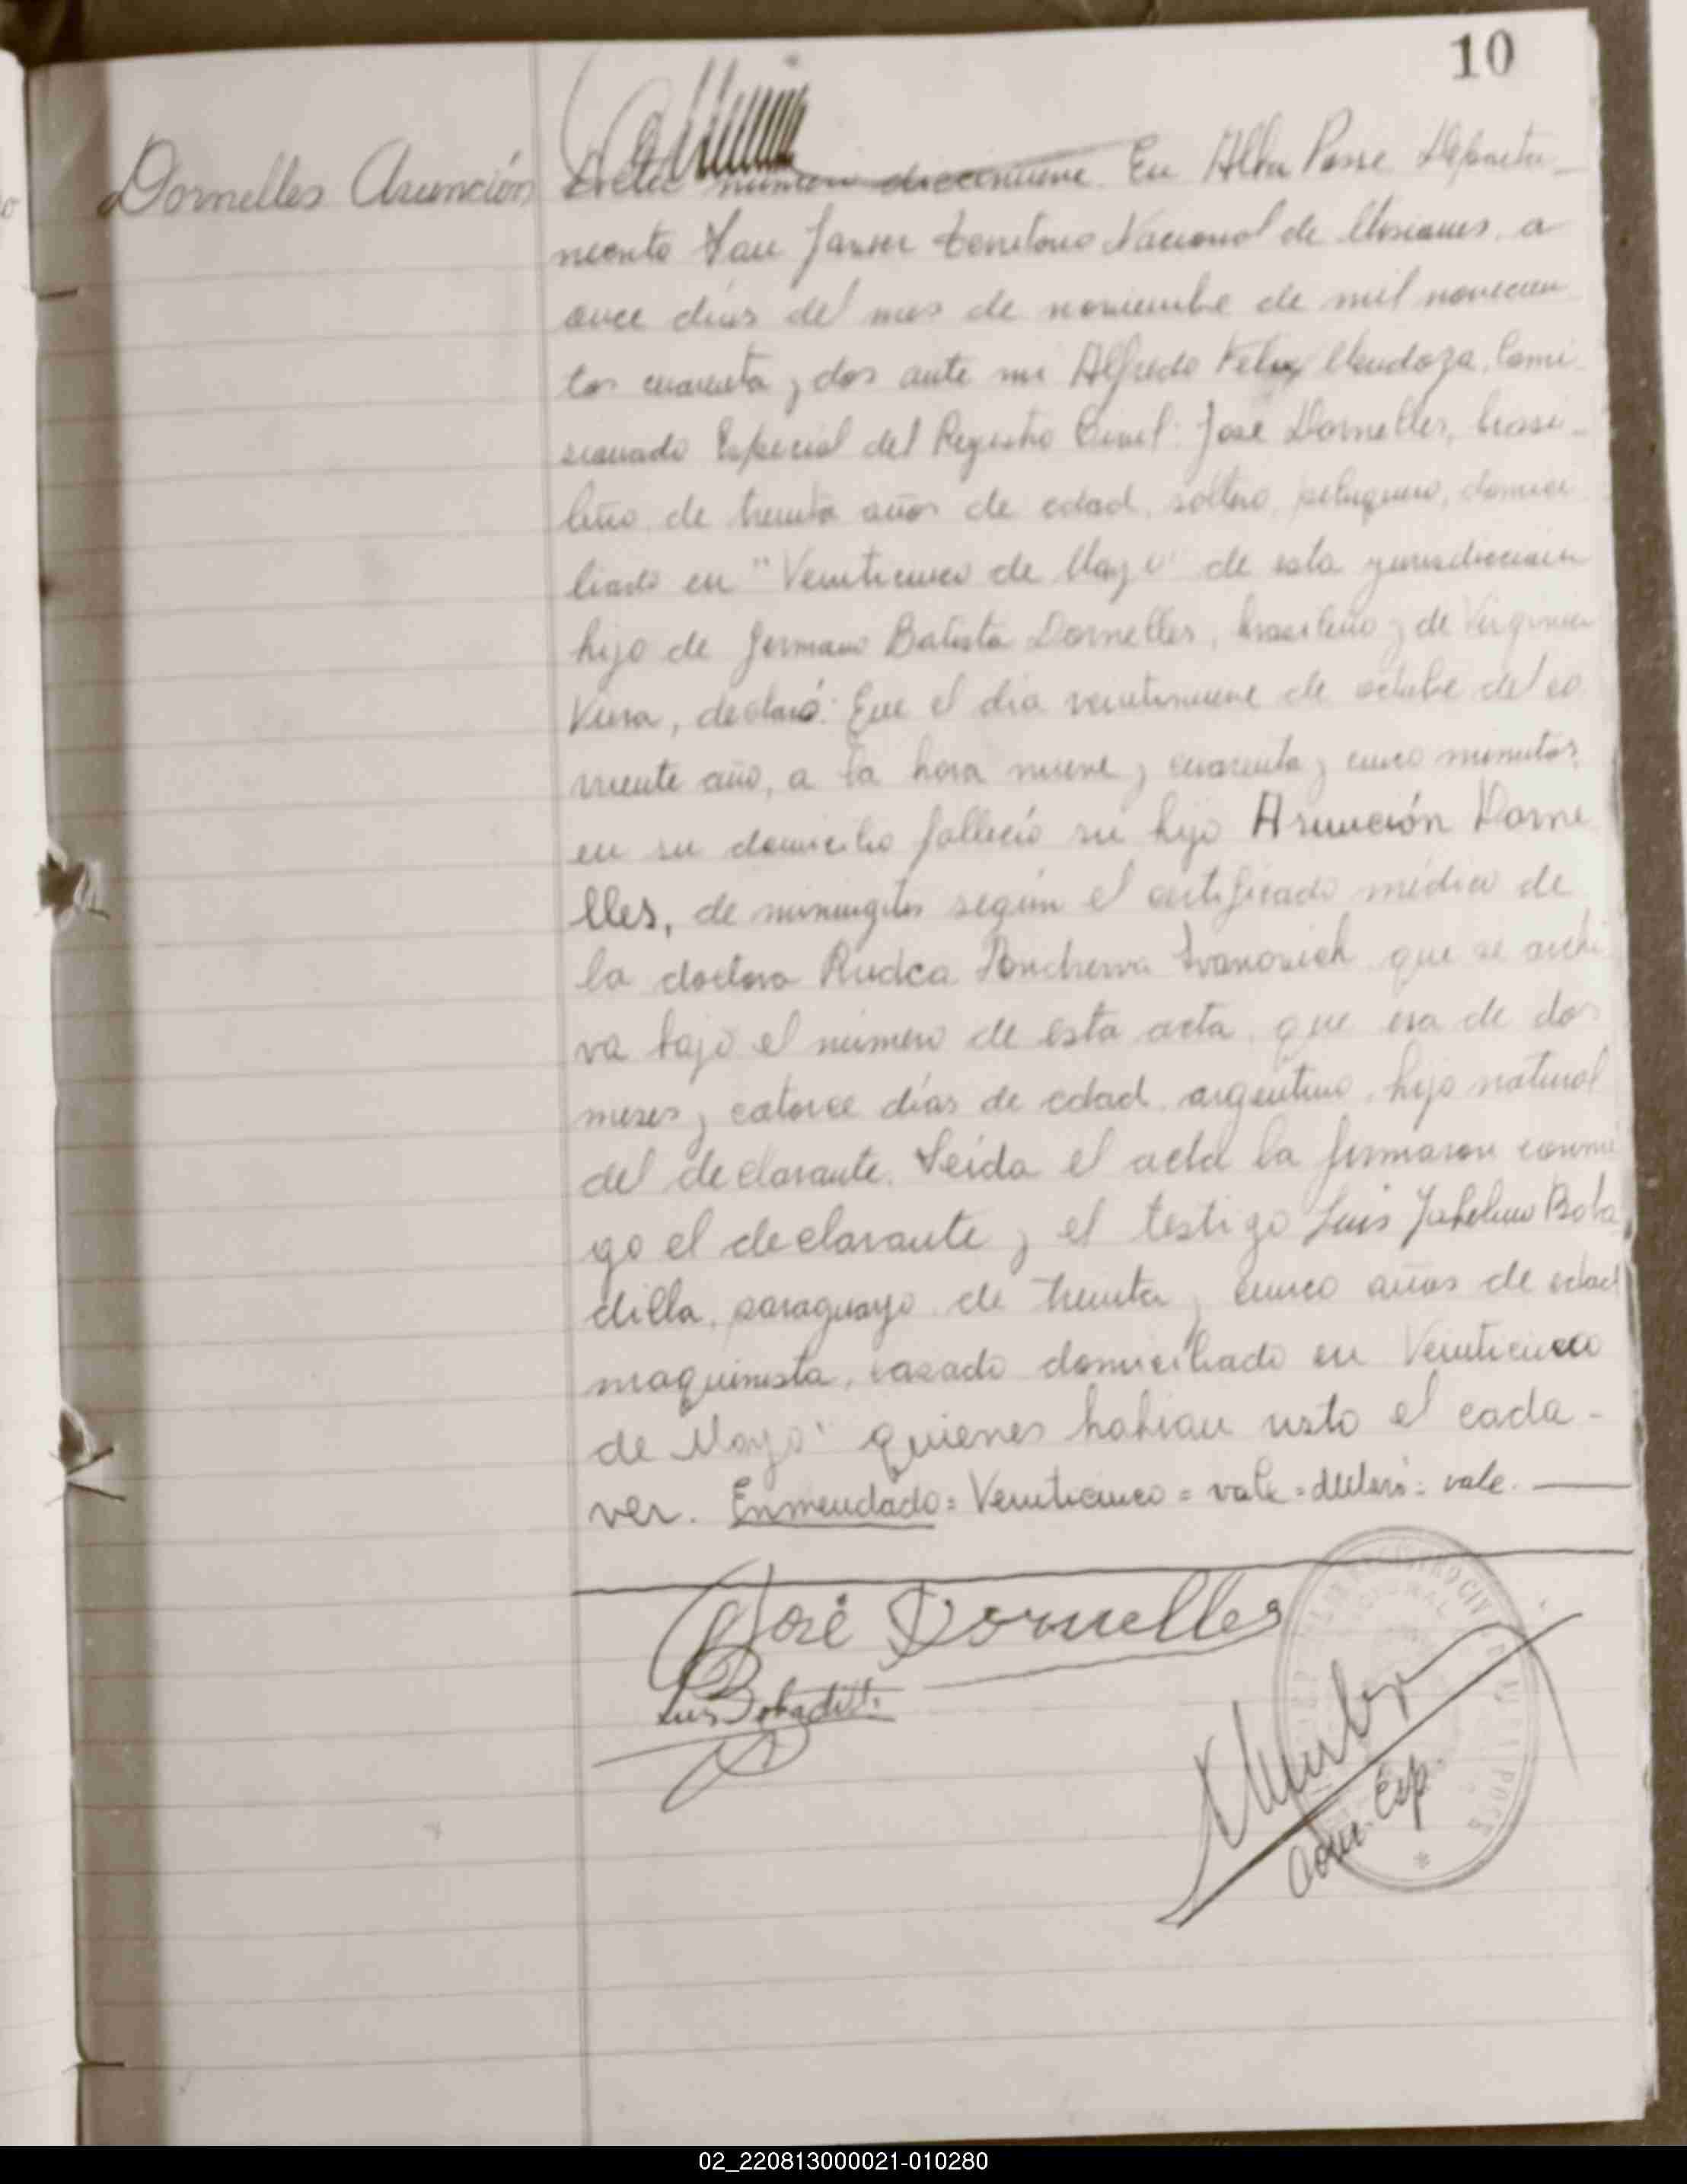 10
Dornelles Asunción
Acta número diecinueve. En Alba Posse Departa-
mento San Javier territorio Nacional de Misiones, a
once días del mes de noviembre de mil novecien
tos cuarenta y dos ante mi Alfredo Felix Mendoza, Comi
sionado Especial del Registro Civil: José Dornelles, brasi-
leño, de treinta años de edad, soltero, peluquero, domici
liado en "Veinticinco de Mayo" de esta jurisdicción
hijo de Germano Batista Dornelles, brasileño y de Virginia
declaró: Que el día veintinueve de octubre del co
rriente año, a la hora nueve y cuarenta y cinco minutos,
en su domicilio falleció su hijo Asunción Dorne
lles, de meningitis según el certificado médico de
la doctora Rudca Ivanovich que se archi
va bajo el número de esta acta, que era de dos
meses y catorce días de edad, argentino, hijo natural
del declarante. Leída el acta la firmaron conmi
go el declarante y el testigo Luis Boba
dilla, paraguayo de treinta y cinco años de edad
maquinista, casado domiciliado en Veinticinco
de Mayo" quienes habían visto el cada-
ver. Enmendado = Veinticinco = vale = declaró = vale.
José Dornelles
Luis Bobadilla
Com. Esp.